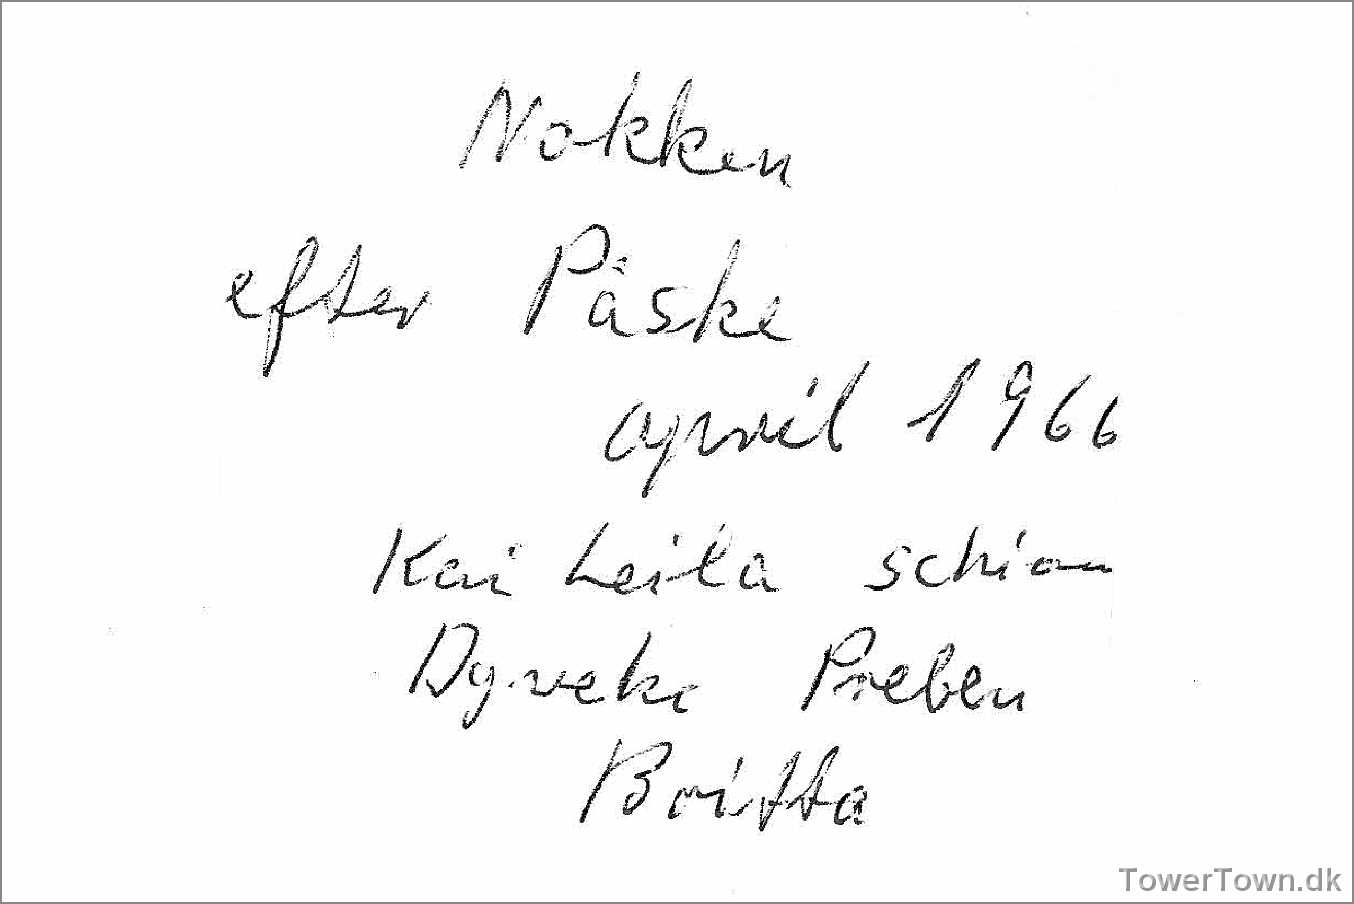 Nokken
efter Påske
april 1966
Kai Leila schiou
Dyveke Preben
Britta
TowerTown.dk